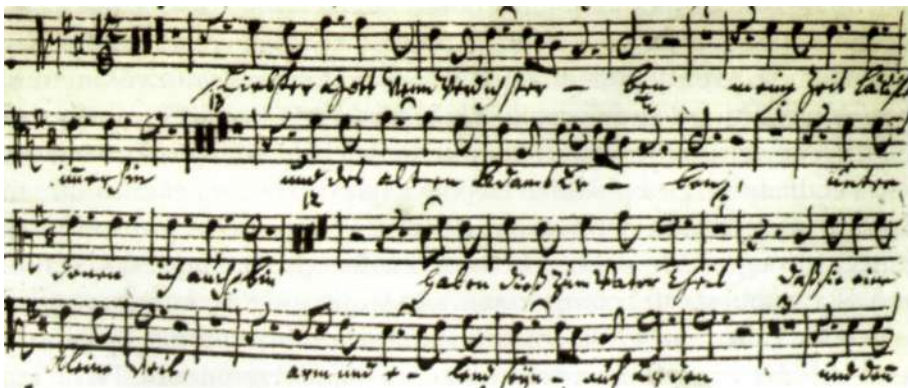 Liebster Gott wenn werd ich ster - ben meine Zeit läufft
13
immerhin und des alten Adams Er - ben, unter
12
denen ich auch bin haben dieß zum Vater theil daß sie eine
3
kleine Weil arm und e - lend seyn - auf Erden und